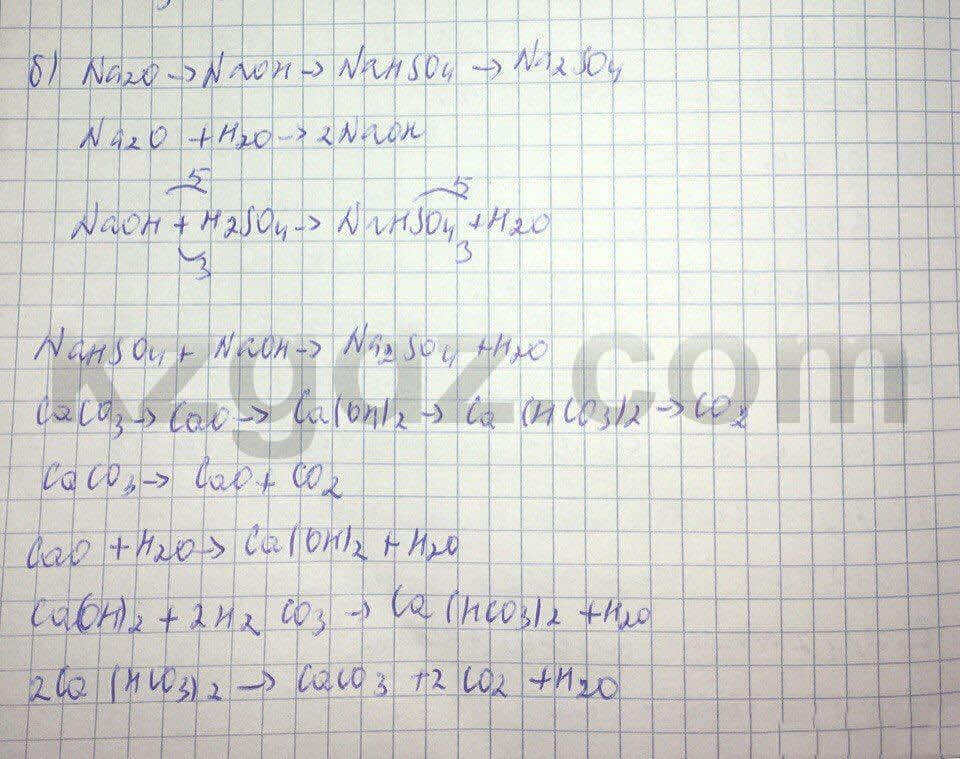 б) Na2O → NaOH → NaHSO4 → Na2SO4
Na2O + H2O → 2NaOH
5
NaOH + H2SO4 → NaHSO4 + H2O
3
5
3
NaHSO4 + NaOH → Na2SO4 + H2O
kzgdz.com
CaCO3 → CaO → Ca(OH)2 → Ca(HCO3)2 → CO2
CaCO3 → CaO + CO2
CaO + H2O → Ca(OH)2 + H2O
Ca(OH)2 + 2H2CO3 → Ca(HCO3)2 + H2O
2Ca(HCO3)2 → CaCO3 + 2CO2 + H2O